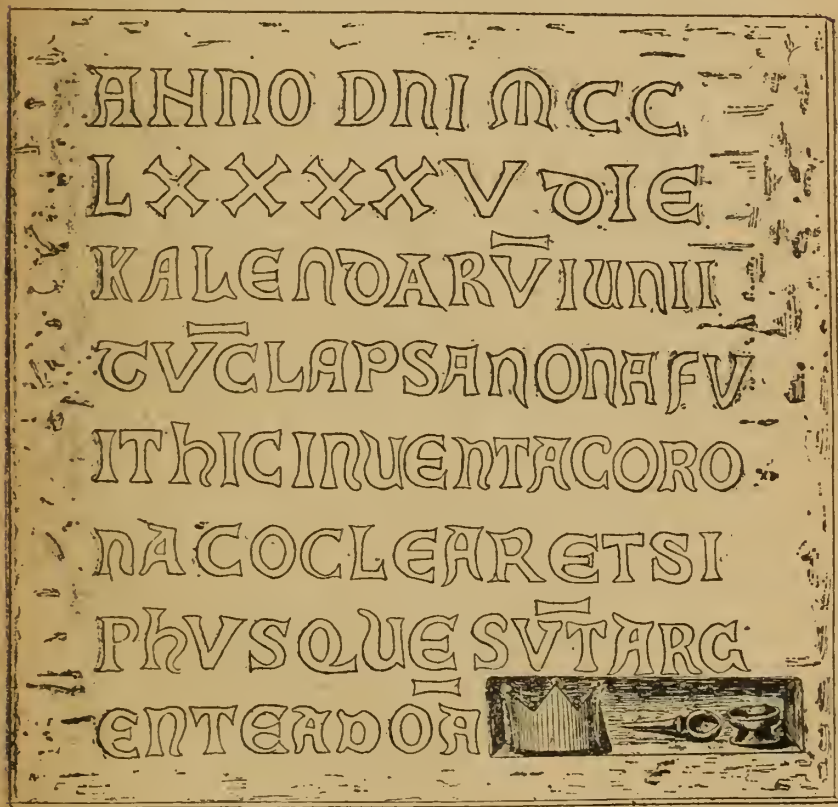 ANNO DNI MCC
LXXXXV DIE
KALENDARV̄ IUNII
TV̄CLAPSANONAFV
ITHICINUENTACORO
NACOCLEARETSI
PHVSQUE SV̄TARG
ENTEADŌA